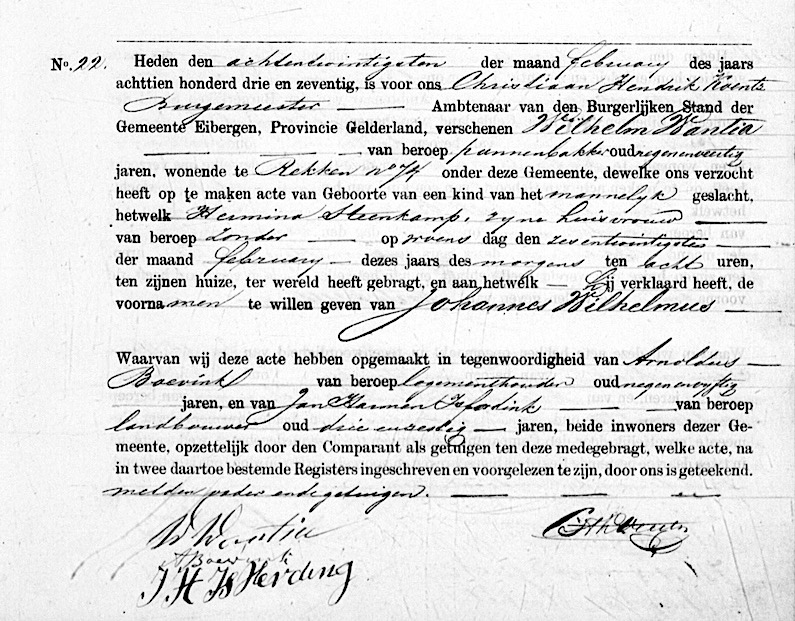 No. 22. Heden den achtentwintigsten der maand february des jaars
achttien honderd drie en zeventig, is voor ons Christiaan Hendrik
Burgemeester Ambtenaar van den Burgerlijken Stand der
Gemeente Eibergen, Provincie Gelderland, verschenen Wilhelm Wantia
van beroep pannenbakker oud negenenveertig
jaren, wonende te Rekken no 74 onder deze Gemeente, dewelke ons verzocht
heeft op te maken acte van Geboorte van een kind van het mannelyk geslacht,
hetwelk Hermina Steenkamp, zyne huisvrouw
van beroep zonder op woens dag den zesentwintigsten
der maand february dezes jaars des morgens ten acht uren,
ten zijnen huize, ter wereld heeft gebragt, en aan hetwelk hij verklaard heeft, de
voornamen te willen geven van Johannes Wilhelmus
Waarvan wij deze acte hebben opgemaakt in tegenwoordigheid van Arnoldus
Boevink van beroep logementhouder oud negenenvyftig
jaren, en van Jan Harmen van beroep
landbouwer oud drieenzestig jaren, beide inwoners dezer Ge-
meente, opzettelijk door den Comparant als getuigen ten deze medegebragt, welke acte, na
in twee daartoe bestemde Registers ingeschreven en voorgelezen te zijn, door ons is geteekend.
melden vader en de getuigen.
W Wantia
A Boevink
J H